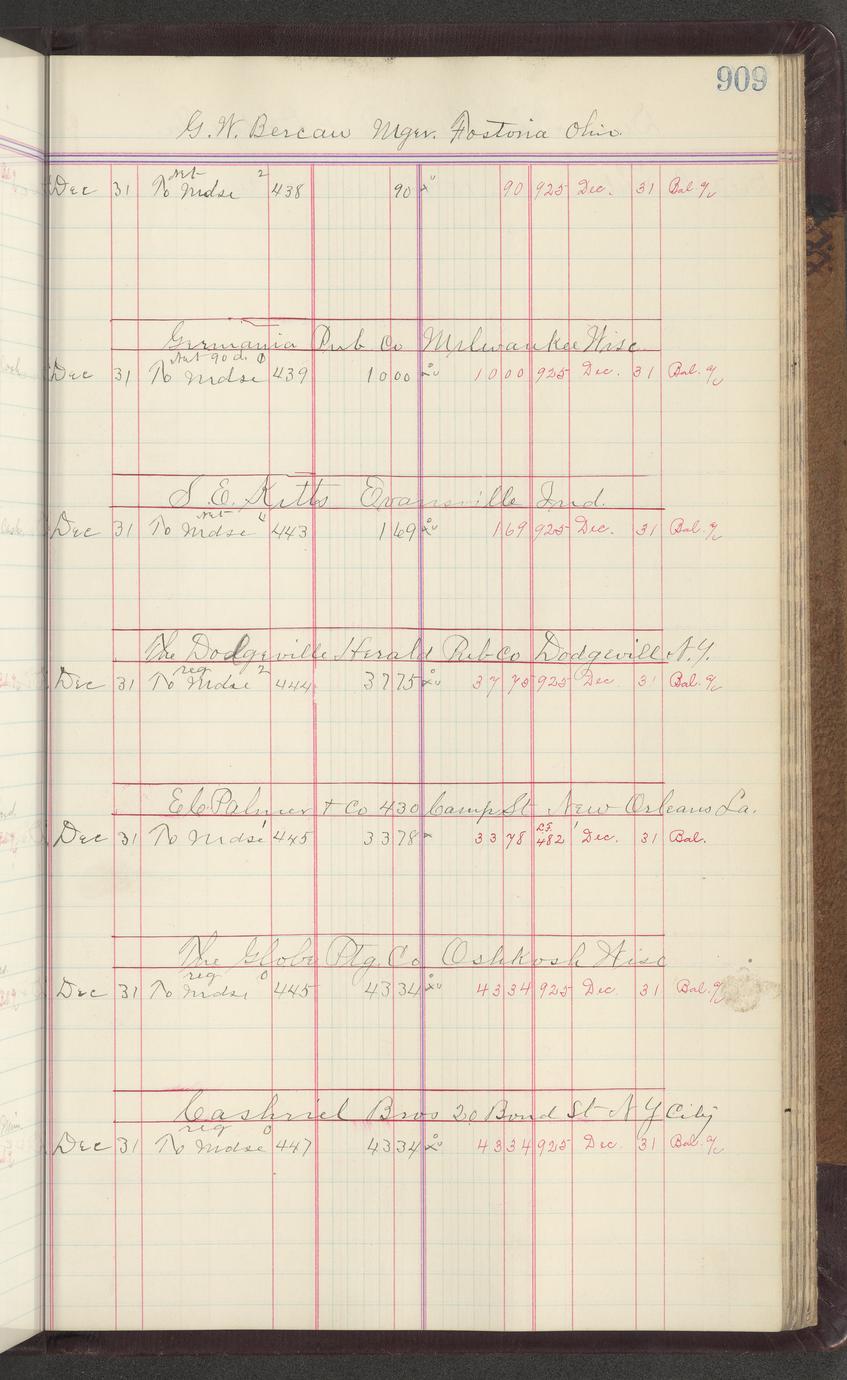 909
G. W. Bercaw Mger. Fostoria Ohio
net 2
Dec 31 To Mdse 438 90 90 925 Dec. 31 Bal. a/c
Germania Pub Co Milwaukee Wisc
Net 90 d. 0
Dec 31 To Mdse 439 1000 1000 925 Dec. 31 Bal. a/c
S. E. Kitts Evansville Ind.
net 4
Dec 31 To Mdse 443 169 169 925 Dec. 31 Bal. a/c
The Dodgeville Herald Pub Co Dodgeville N.Y.
reg 2
Dec 31 To Mdse 444 3775 3775 925 Dec 31 Bal. a/c
E C Palmer & Co 430 Camp St New Orleans La.
Dec 31 To Mdse 445 3378 3378 482 Dec. 31 Bal.
The Globe Ptg Co Oshkosh Wisc
reg 0
Dec 31 To Mdse 445 4334 4334 925 Dec. 31 Bal. a/c
Cashriel Bros 20 Bond St N Y City
reg 0
Dec 31 To Mdse 447 4334 4334 925 Dec. 31 Bal. a/c